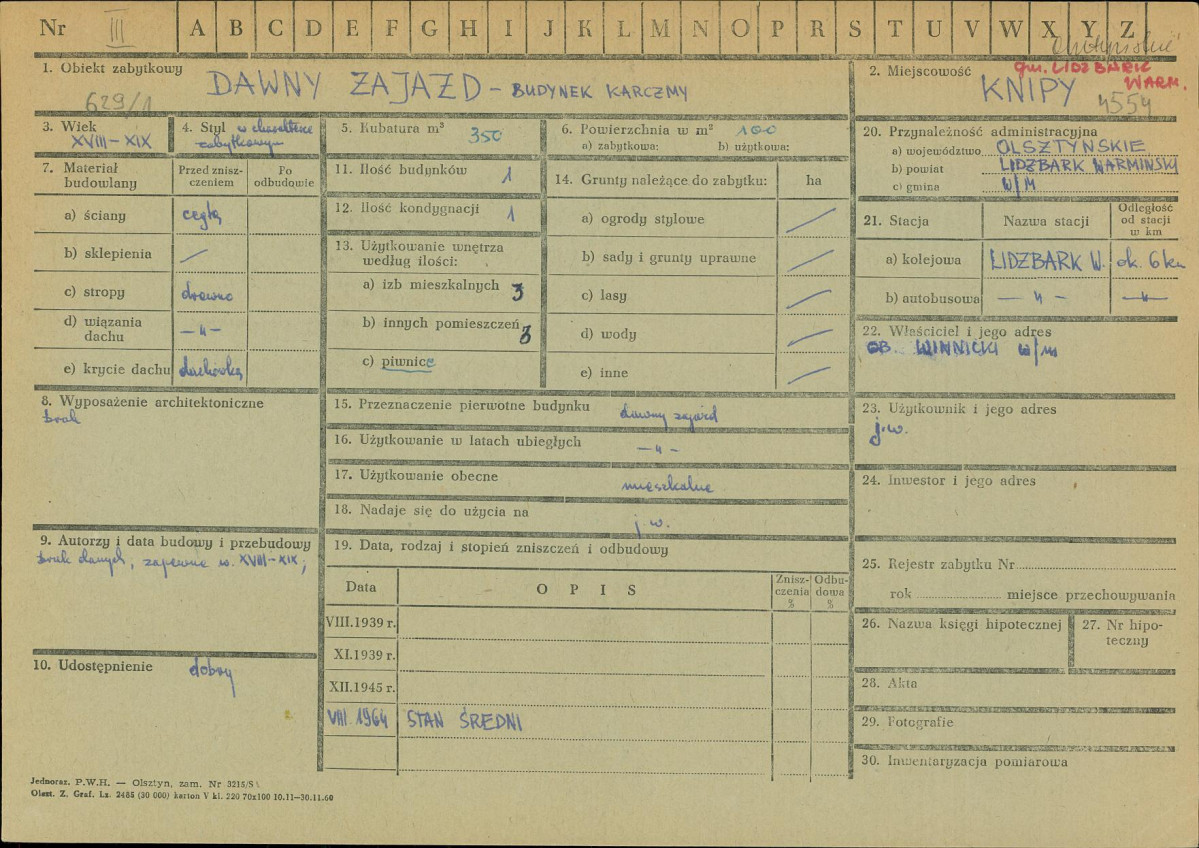 Nr III A B C D E F G H I J K L M N O P R S T U V W X Y Z
1. Obiekt zabytkowy
DAWNY ZAJAZD – BUDYNEK KARCZMY
629/1
2. Miejscowość
gm. LIDZBARK
WARM.
KNIPY
4554
3. Wiek
XVIII – XIX
4. Styl w charakterze
zabytkowym
5. Kubatura m³ 350
6. Powierzchnia w m² 100
a) zabytkowa: b) użytkowa:
7. Materiał
budowlany
Przed znisz-
czeniem
Po
odbudowie
a) ściany cegła
b) sklepienia —
c) stropy drewno
d) wiązania
dachu
— „ —
e) krycie dachu dachówka
8. Wyposażenie architektoniczne
brak
9. Autorzy i data budowy i przebudowy
brak danych, zapewne w. XVIII – XIX;
10. Udostępnienie dobry
11. Ilość budynków 1
12. Ilość kondygnacji 1
13. Użytkowanie wnętrza
według ilości:
a) izb mieszkalnych 3
b) innych pomieszczeń 3
c) piwnice
14. Grunty należące do zabytku: ha
a) ogrody stylowe —
b) sady i grunty uprawne —
c) lasy —
d) wody —
e) inne —
15. Przeznaczenie pierwotne budynku dawny zajazd
16. Użytkowanie w latach ubiegłych — „ —
17. Użytkowanie obecne mieszkalne
18. Nadaje się do użycia na j. w.
19. Data, rodzaj i stopień zniszczeń i odbudowy
Data O P I S Znisz-
czenia
% Odbu-
dowa
%
VIII.1939 r.
XI.1939 r.
XII.1945 r.
VIII 1964 STAN ŚREDNI
20. Przynależność administracyjna
a) województwo OLSZTYŃSKIE
b) powiat LIDZBARK WARMIŃSKI
c) gmina W/M
21. Stacja Nazwa stacji Odległość
od stacji
w km
a) kolejowa LIDZBARK W. ok. 6 km
b) autobusowa — „ — — „ —
22. Właściciel i jego adres
OB. WINNICKI w/m
23. Użytkownik i jego adres
j.w.
24. Inwestor i jego adres
25. Rejestr zabytku Nr
rok miejsce przechowywania
26. Nazwa księgi hipotecznej
27. Nr hipo-
teczny
28. Akta
29. Fotografie
30. Inwentaryzacja pomiarowa
Jednoraz. P.W.H. — Olsztyn, zam. Nr 3215/S
Olszt. Z. Graf. Lz. 2485 (30 000) karton V kl. 220 70x100 10.11—30.11.60